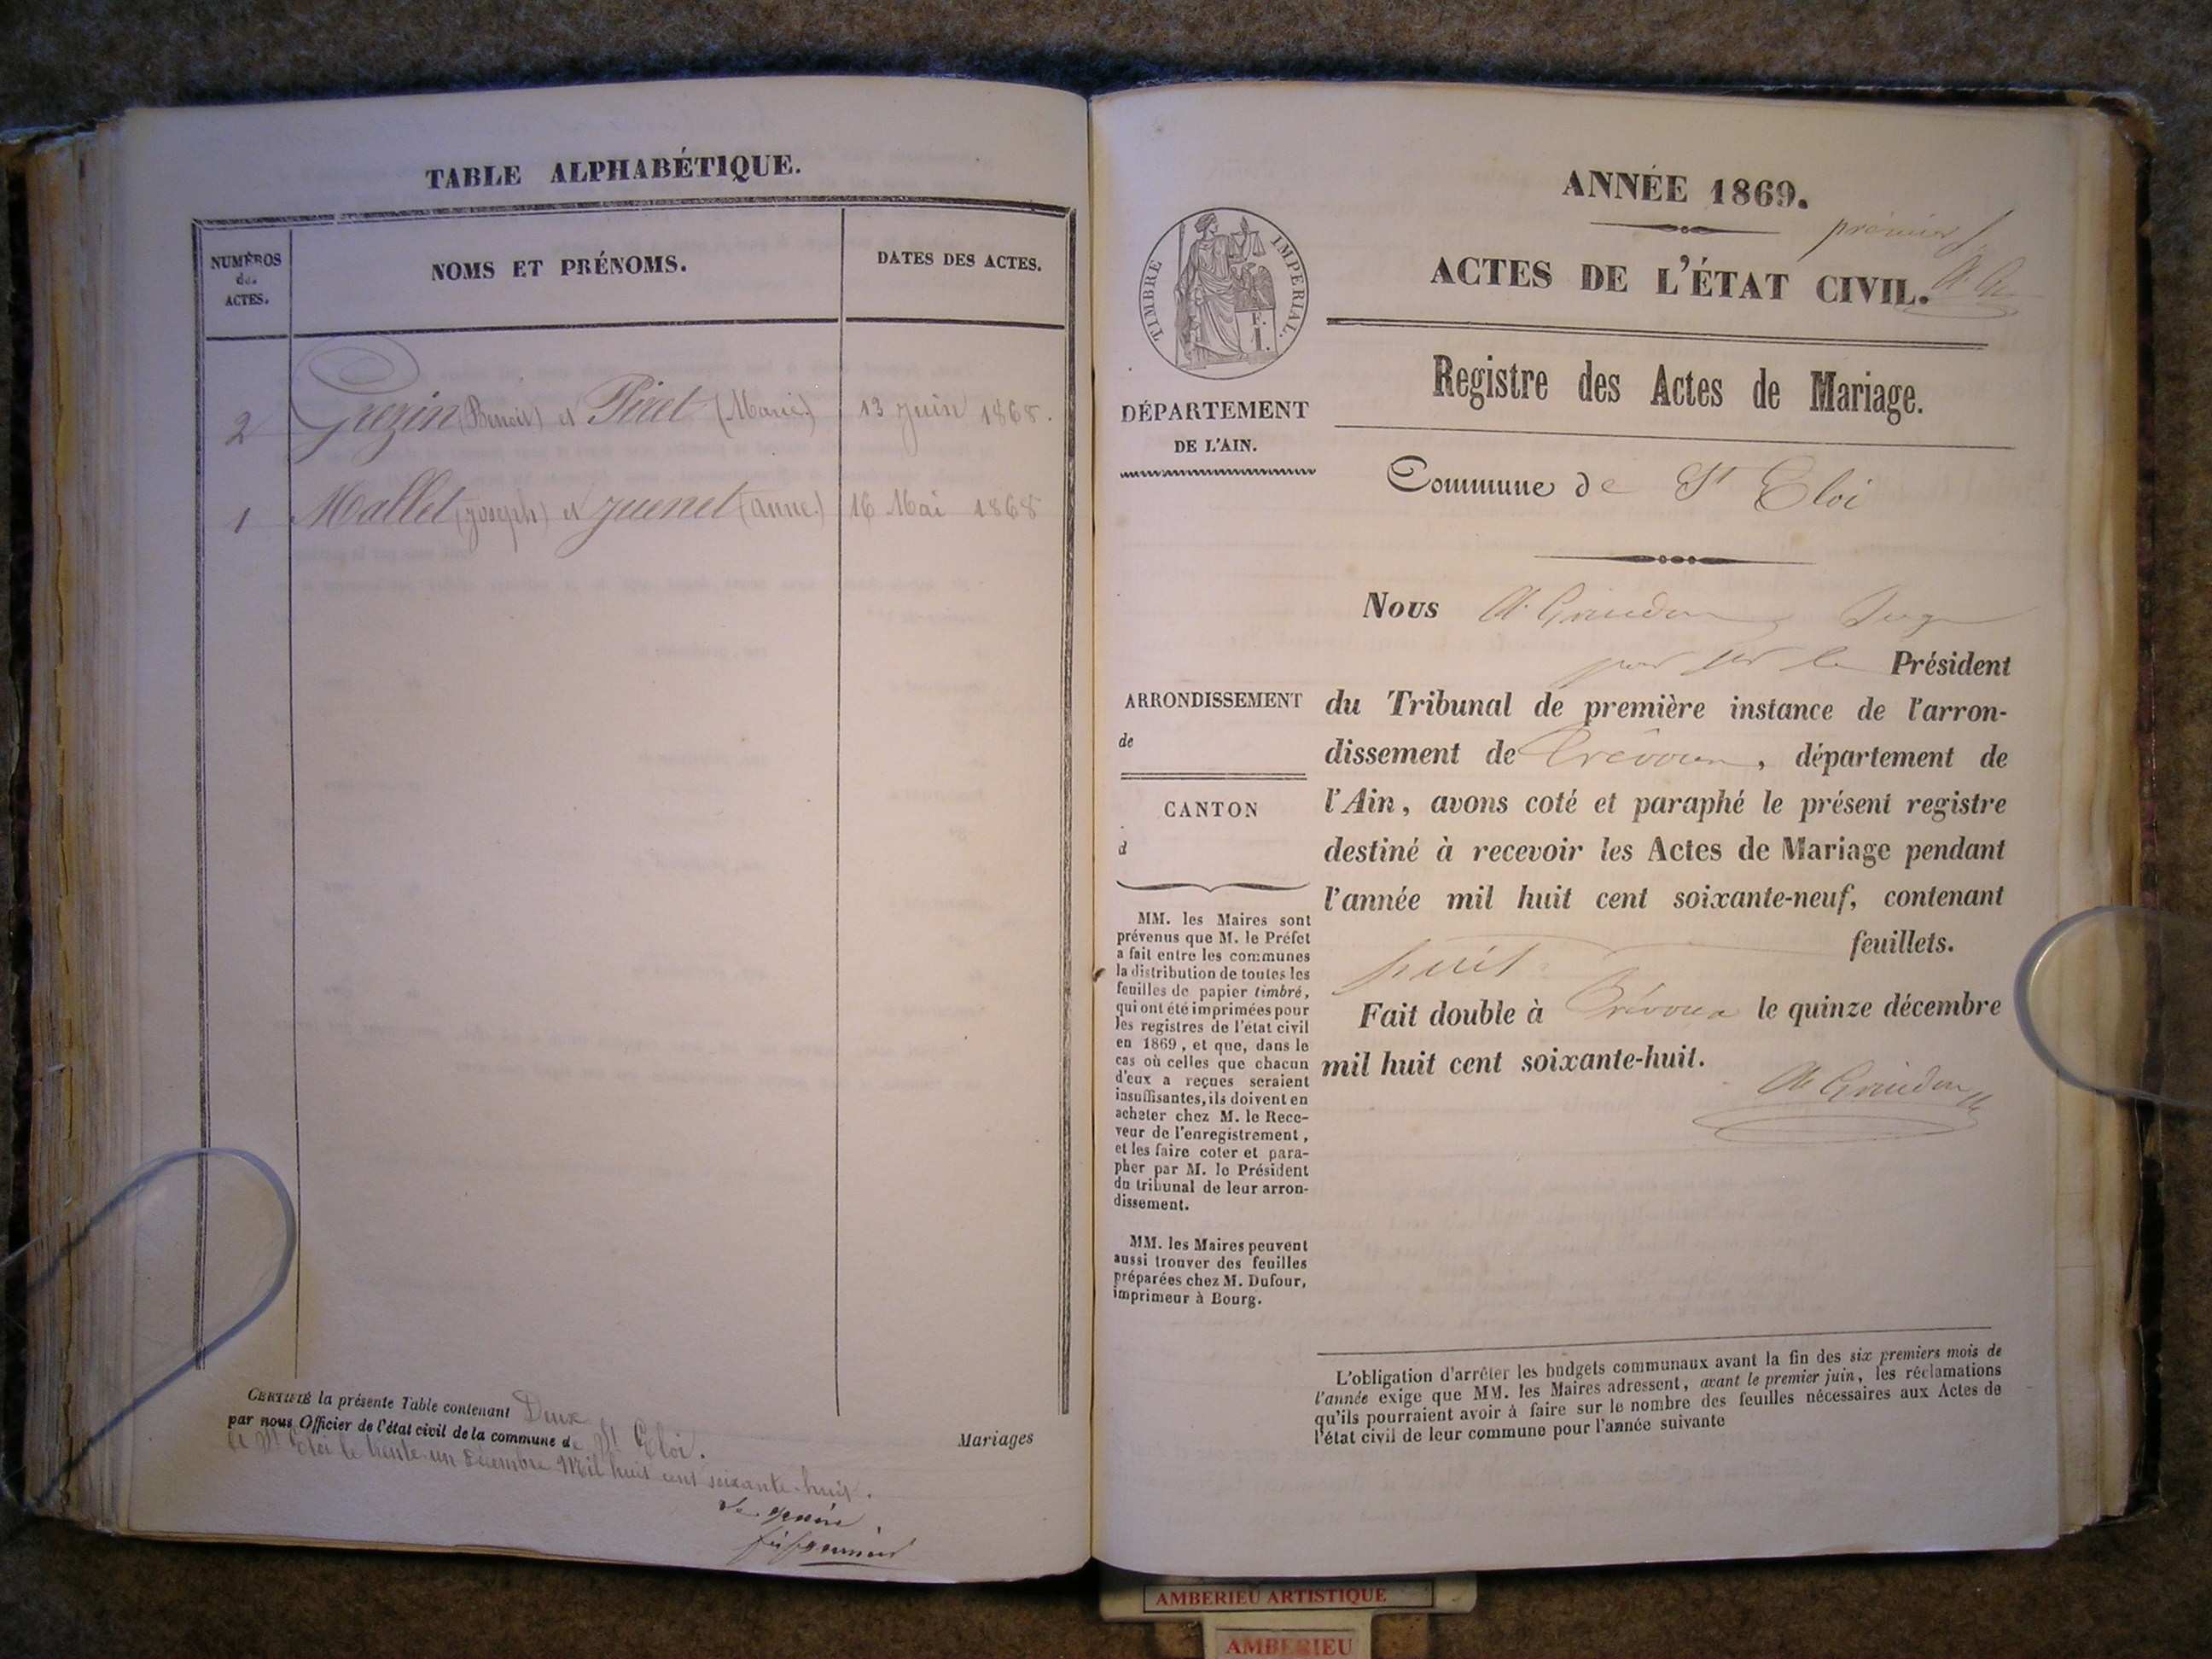 TABLE ALPHABÉTIQUE.
NUMÉROS
des
ACTES.
NOMS ET PRÉNOMS.
DATES DES ACTES.
2 Grezin (Benoit) et Piret (Marie) 13 Juin 1868.
1 Mallet (Joseph) et Juenet (anne) 16 Mai 1868
CERTIFIÉ la présente Table contenant Deux
Mariages
par nous Officier de l'état civil de la commune de St Eloi.
a St Eloi le trente un Décembre Mil huit cent soixante-huit.
Le maire
ANNÉE 1869.
premier
ACTES DE L'ÉTAT CIVIL.
TIMBRE IMPERIAL.
Registre des Actes de Mariage.
DÉPARTEMENT
DE L'AIN.
Commune de St Eloi
Nous Juge
pour le Président
ARRONDISSEMENT
de
CANTON
d
du Tribunal de première instance de l'arron-
dissement de Trévoux, département de
l'Ain, avons coté et paraphé le présent registre
destiné à recevoir les Actes de Mariage pendant
l'année mil huit cent soixante-neuf, contenant
huit feuillets.
Fait double à Trévoux le quinze décembre
mil huit cent soixante-huit.
MM. les Maires sont
prévenus que M. le Préfet
a fait entre les communes
la distribution de toutes les
feuilles de papier timbré,
qui ont été imprimées pour
les registres de l'état civil
en 1869, et que, dans le
cas où celles que chacun
d'eux a reçues seraient
insuffisantes, ils doivent en
acheter chez M. le Rece-
veur de l'enregistrement,
et les faire coter et para-
pher par M. le Président
du tribunal de leur arron-
dissement.
MM. les Maires peuvent
aussi trouver des feuilles
préparées chez M. Dufour,
imprimeur à Bourg.
L'obligation d'arrêter les budgets communaux avant la fin des six premiers mois de
l'année exige que MM. les Maires adressent, avant le premier juin, les réclamations
qu'ils pourraient avoir à faire sur le nombre des feuilles nécessaires aux Actes de
l'état civil de leur commune pour l'année suivante
AMBERIEU ARTISTIQUE
AMBERIEU